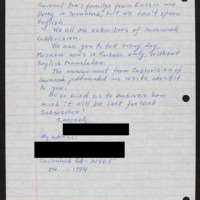 Several Jew's familys from Russia are
living in Savannah, but we don't speak
English.
We all are subscribers of Savannah
Cablevision.
We ask you to tell every day
Moscow news in Russian only, without
English translation.
The management from Cablevision of
Savannah recommended us write about it
to you.
Be so kind as to answer how
much it will be cost for said
Subscriber.
Sincerely
My address:
Savannah GA
1994